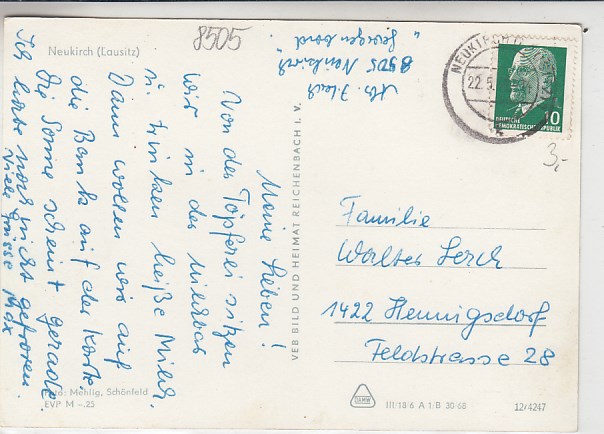 Neukirch (Lausitz)
8505
8505 Neukirch
Meine Lieben!
Von der Töpferei sitzen
wir in der Milchbar
u. trinken heiße Milch.
Dann wollen wir auf
die Bank auf der Karte.
Die Sonne scheint gerade.
Ich habe noch nicht gefroren.
Viele Grüsse Max
Mehlig, Schönfeld
EVP M –.25
VEB BILD UND HEIMAT REICHENBACH I. V.
NEUKIRCH
22.5.
DEUTSCHE
DEMOKRATISCHE REPUBLIK
10
3,-
Familie
Walter Lerch
1422 Hennigsdorf
Feldstrasse 28
III/18/6 A 1/B 30/68
12/4247